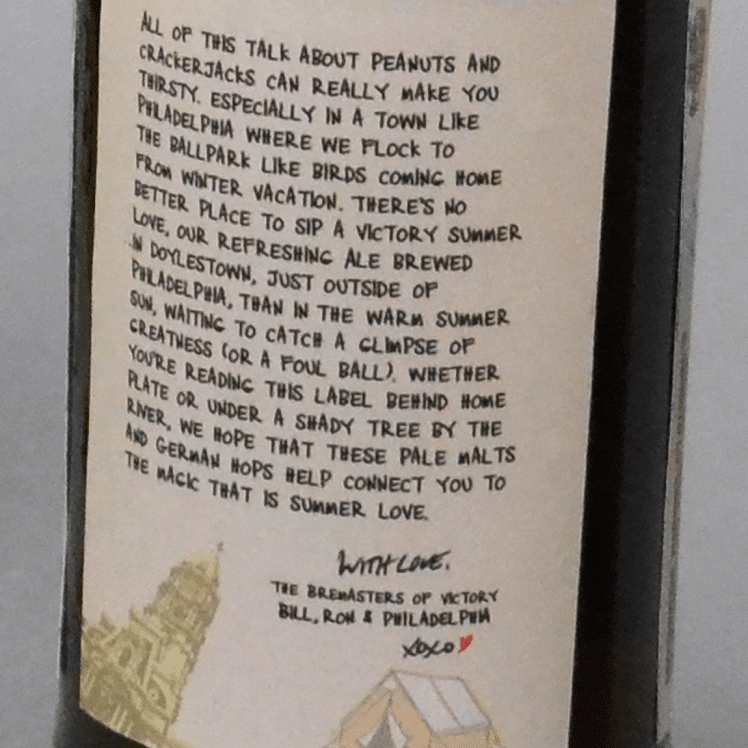 ALL OF THIS TALK ABOUT PEANUTS AND
CRACKERJACKS CAN REALLY MAKE YOU
THIRSTY. ESPECIALLY IN A TOWN LIKE
PHILADELPHIA WHERE WE FLOCK TO
THE BALLPARK LIKE BIRDS COMING HOME
FROM WINTER VACATION. THERE'S NO
BETTER PLACE TO SIP A VICTORY SUMMER
LOVE, OUR REFRESHING ALE BREWED
IN DOYLESTOWN, JUST OUTSIDE OF
PHILADELPHIA, THAN IN THE WARM SUMMER
SUN, WAITING TO CATCH A GLIMPSE OF
GREATNESS (OR A FOUL BALL). WHETHER
YOU'RE READING THIS LABEL BEHIND HOME
PLATE OR UNDER A SHADY TREE BY THE
RIVER, WE HOPE THAT THESE PALE MALTS
AND GERMAN HOPS HELP CONNECT YOU TO
THE MAGIC THAT IS SUMMER LOVE.
WITH LOVE,
THE BREMASTERS OF VICTORY
BILL, RON & PHILADELPHIA
XOXO